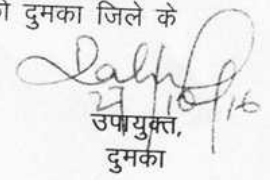 दुमका जिले के
उपायुक्त,
दुमका